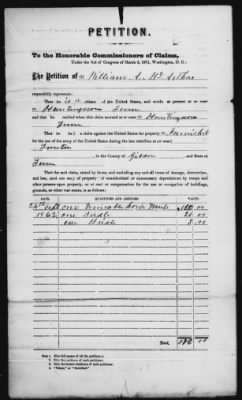 PETITION.
To the Honorable Commissioners of Claims,
Under the Act of Congress of March 3, 1871, Washington, D. C.:
The Petition of William A. McArthur
respectfully represents:
That he is a citizen of the United States, and resides at present at or near
Huntingdon Tenn
and that he resided when this claim accrued at or near Huntingdon
Tenn
That he has a claim against the United States for property furnished
for the use of the army of the United States during the late rebellion at (or near)
Trenton
, in the County of Gibson and State of
Tenn
That the said claim, stated by items, and excluding any and all items of damage, destruction,
and loss, (and not use,) of property; of unauthorized or unnecessary depredations by troops and
other persons upon property, or of rent or compensation for the use or occupation of buildings,
grounds, or other real estate, is as follows:
DATE. QUANTITIES AND ARTICLES. VALUE.
one
1862 one Sadle 20 00
one Bridle
Total,